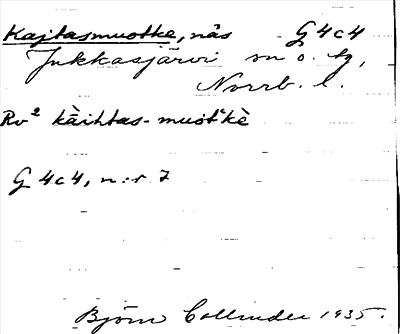 Kajtasmuotke, näs G 4c4
Jukkasjärvi sn o. tg,
Norrb. l.
Rv² kàihtas-muot'kè
G 4c4, n:r 7
Björn Collinder 1935.